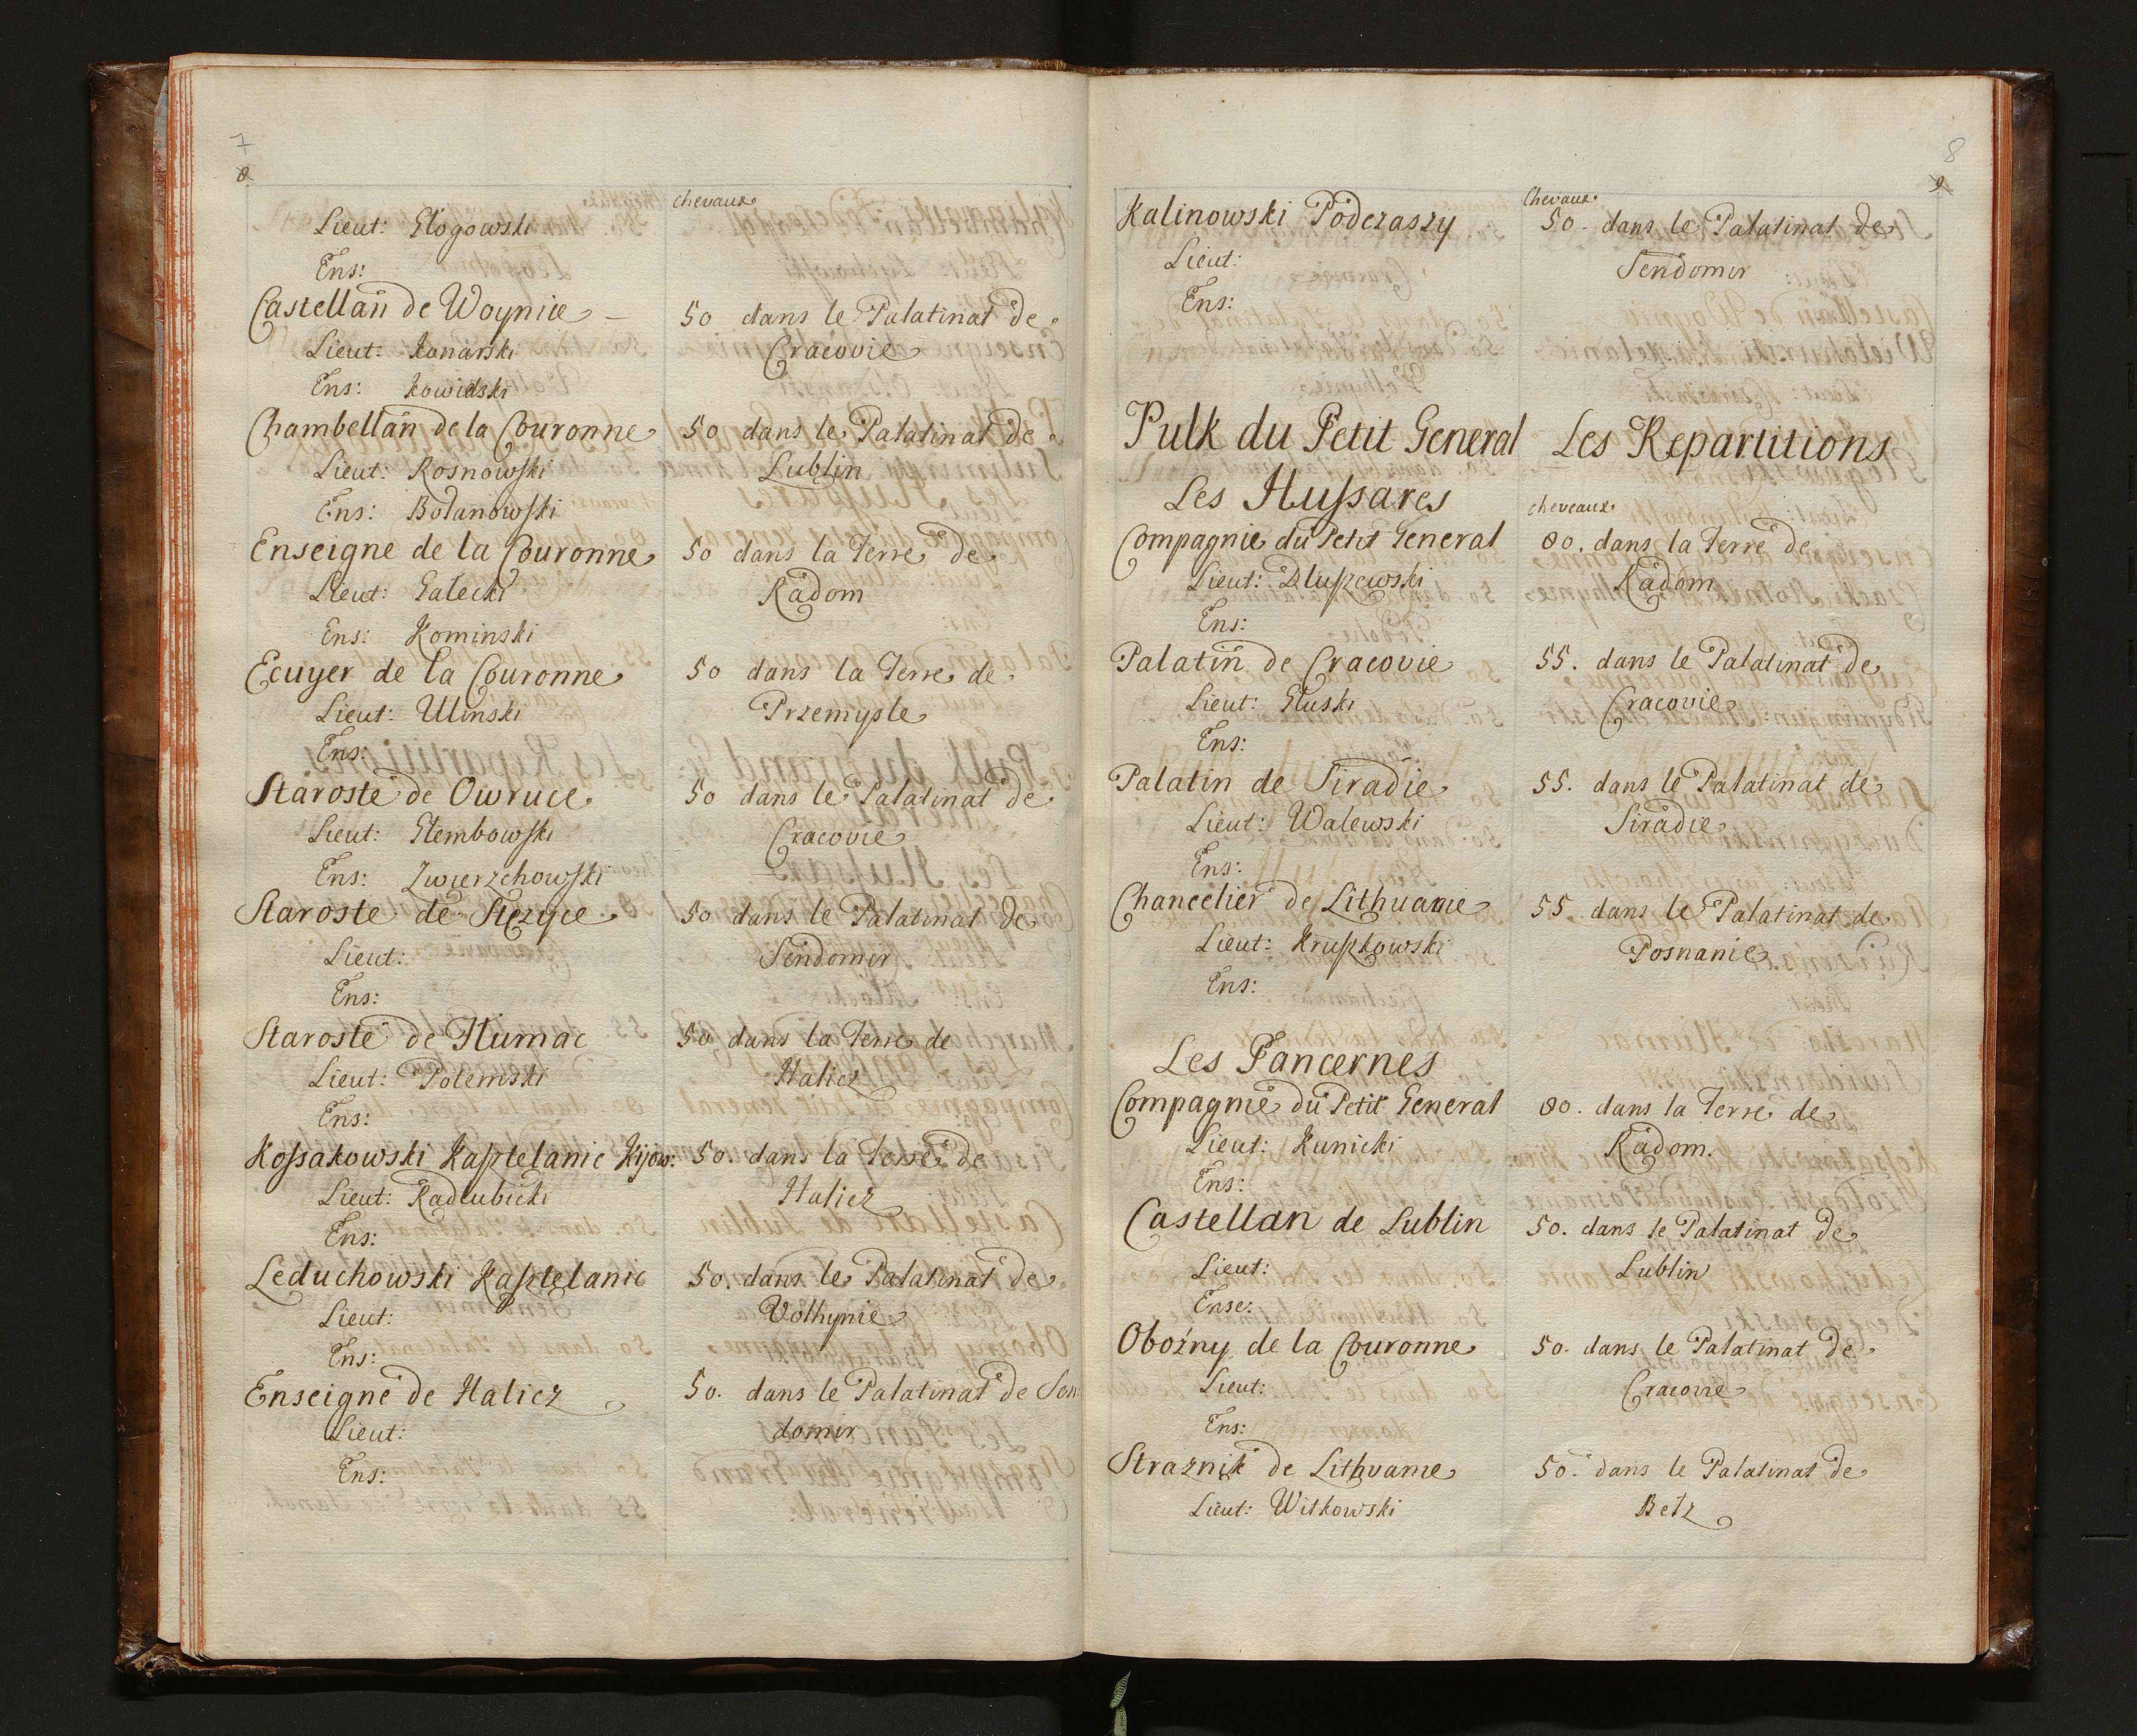 7
8
chevaux
Lieut: Glogowski
Ens:
Castellan de Woynice 50 dans le Palatinat de
Lieut: Konarski Cracovie
Ens: Kowidski
Chambellan de la Couronne 50 dans le Palatinat de
Lieut: Rosnowski Lublin
Ens: Bolanowski
Enseigne de la Couronne 50 dans la Terre de
Lieut: Galecki Radom
Ens: Kominski
Ecuyer de la Couronne 50 dans la Terre de
Lieut: Ulinski Przemysle
Ens:
Staroste de Owruce 50 dans le Palatinat de
Lieut: Glembowski Cracovie
Ens: Zwierzchowski
Staroste de Stezyce 50 dans le Palatinat de
Lieut: Sendomir
Ens:
Staroste de Tlumac 50 dans la Terre de
Lieut: Polemski Halicz
Ens:
Kossakowski Kasztelanic Kijow: 50. dans la Terre de
Lieut: Radlubicki Halicz
Ens:
Leduchowski Kasztelanic 50. dans le Palatinat de
Lieut: Volhynie
Ens:
Enseigne de Halicz 50. dans le Palatinat de Sen
Lieut: domir
Ens:
8
9
Chevaux
Kalinowski Podczaszy 50. dans le Palatinat de
Lieut: Sendomir
Ens:
Pulk du Petit General Les Repartitions
Les Hussares chevaux
Compagnie du Petit General 80. dans la Terre de
Lieut: Dluszewski Radom
Ens:
Palatin de Cracovie 55. dans le Palatinat de
Lieut: Gluski Cracovie
Ens:
Palatin de Siradie 55. dans le Palatinat de
Lieut: Walewski Siradie
Ens:
Chancelier de Lithuanie 55 dans le Palatinat de
Lieut: Kruszkowski Posnanie
Ens:
Les Pancernes
Compagnie du Petit General 80. dans la Terre de
Lieut: Kunicki Radom.
Ens:
Castellan de Lublin 50. dans le Palatinat de
Lieut: Lublin
Ense:
Obozny de la Couronne 50. dans le Palatinat de
Lieut: Cracovie
Ens:
Straznik de Lithvanie 50. dans le Palatinat de
Lieut: Witkowski Belz